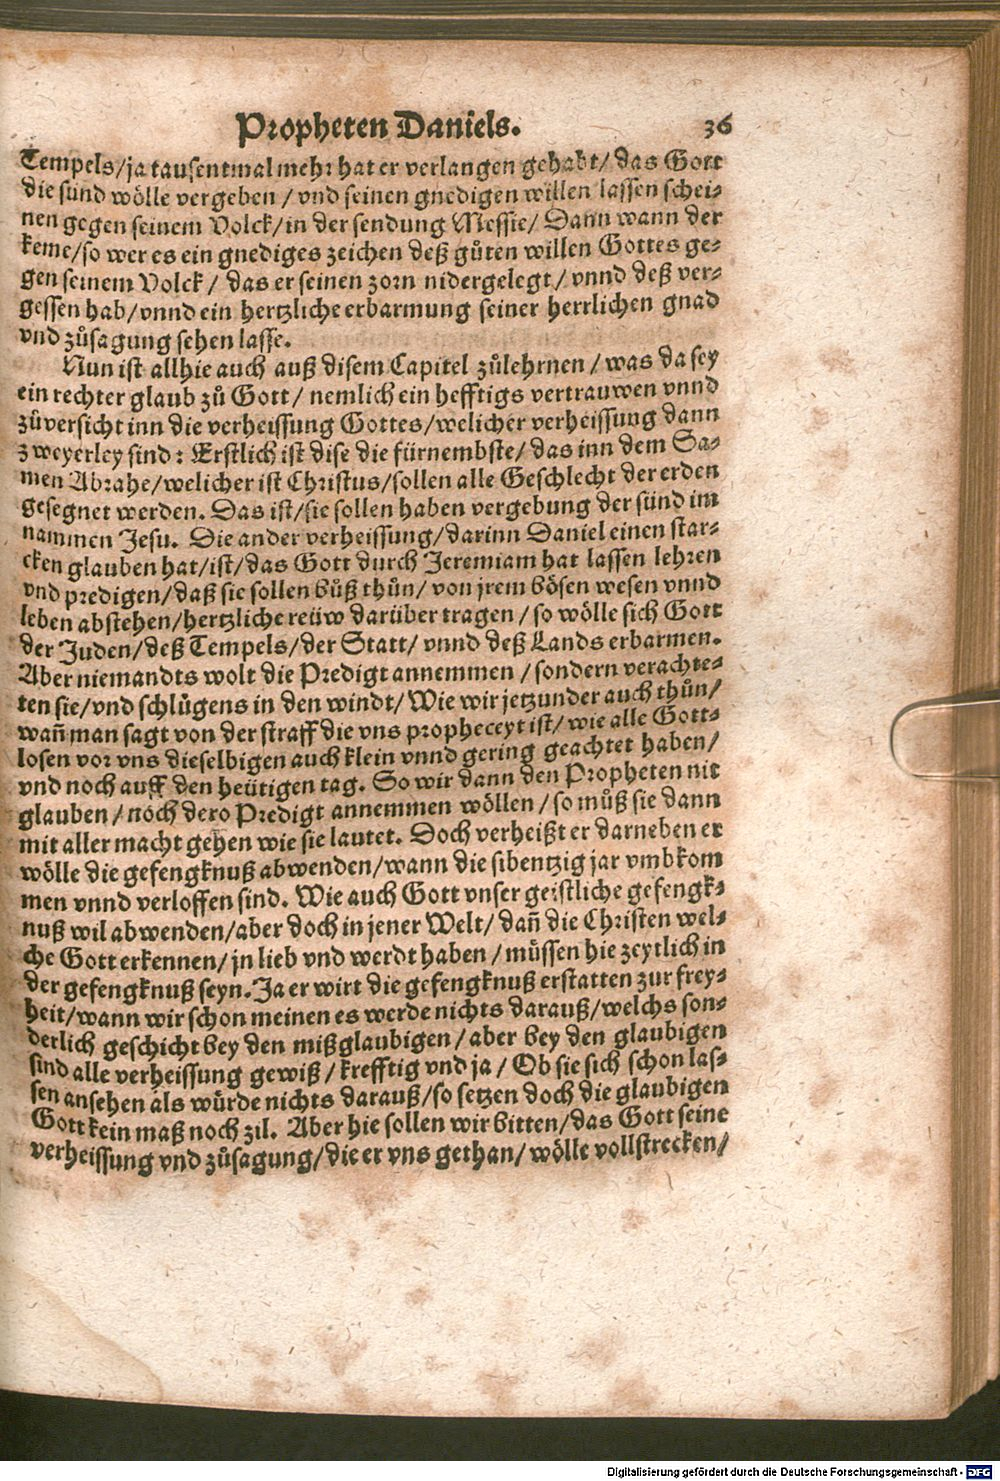 Propheten Daniels. 36
Tempels/ja tausentmal mehr hat er verlangen gehabt/das Gott
die sünd wölle vergeben/vnd seinen gnedigen willen lassen schei-
nen gegen seinem Volck/in der sendung Messie/Dann wann der
keme/so wer es ein gnediges zeichen deß gůten willen Gottes ge-
gen seinem Volck/das er seinen zorn nidergelegt/vnnd deß ver-
gessen hab/vnnd ein hertzliche erbarmung seiner herrlichen gnad
vnd zůsagung sehen lasse.
Nun ist allhie auch auß disem Capitel zůlehrnen/was da sey
ein rechter glaub zů Gott/nemlich ein hefftigs vertrauwen vnnd
zůversicht inn die verheissung Gottes/welicher verheissung dann
zweyerley sind: Erstlich ist dise die fürnembste/das inn dem Sa-
men Abrahe/welicher ist Christus/sollen alle Geschlecht der erden
gesegnet werden. Das ist/sie sollen haben vergebung der sünd im
nammen Jesu. Die ander verheissung/darinn Daniel einen star-
cken glauben hat/ist/das Gott durch Jeremiam hat lassen lehren
vnd predigen/daß sie sollen bůß thůn/von jrem bösen wesen vnnd
leben abstehen/hertzliche reüw darüber tragen/so wölle sich Gott
der Juden/deß Tempels/der Statt/vnnd deß Lands erbarmen.
Aber niemandts wolt die Predigt annemmen/sondern verachte-
ten sie/vnd schlůgens in den windt/Wie wir jetzunder auch thůn/
wañ man sagt von der straff die vns propheceyt ist/wie alle Gott-
losen vor vns dieselbigen auch klein vnnd gering geachtet haben/
vnd noch auff den heütigen tag. So wir dann den Propheten nit
glauben/noch dero Predigt annemmen wöllen/so můß sie dann
mit aller macht gehen wie sie lautet. Doch verheißt er darneben er
wölle die gefengknuß abwenden/wann die sibentzig jar vmbkom
men vnnd verloffen sind. Wie auch Gott vnser geistliche gefengk-
nuß wil abwenden/aber doch in jener Welt/dañ die Christen wel-
che Gott erkennen/jn lieb vnd werdt haben/müssen hie zeytlich in
der gefengknuß seyn. Ja er wirt die gefengknuß erstatten zur frey-
heit/wann wir schon meinen es werde nichts darauß/welchs son-
derlich geschicht bey den mißglaubigen/aber bey den glaubigen
sind alle verheissung gewiß/krefftig vnd ja/Ob sie sich schon las-
sen ansehen als würde nichts darauß/so setzen doch die glaubigen
Gott kein maß noch zil. Aber hie sollen wir bitten/das Gott seine
verheissung vnd zůsagung/die er vns gethan/wölle vollstrecken/
Digitalisierung gefördert durch die Deutsche Forschungsgemeinschaft - DFG